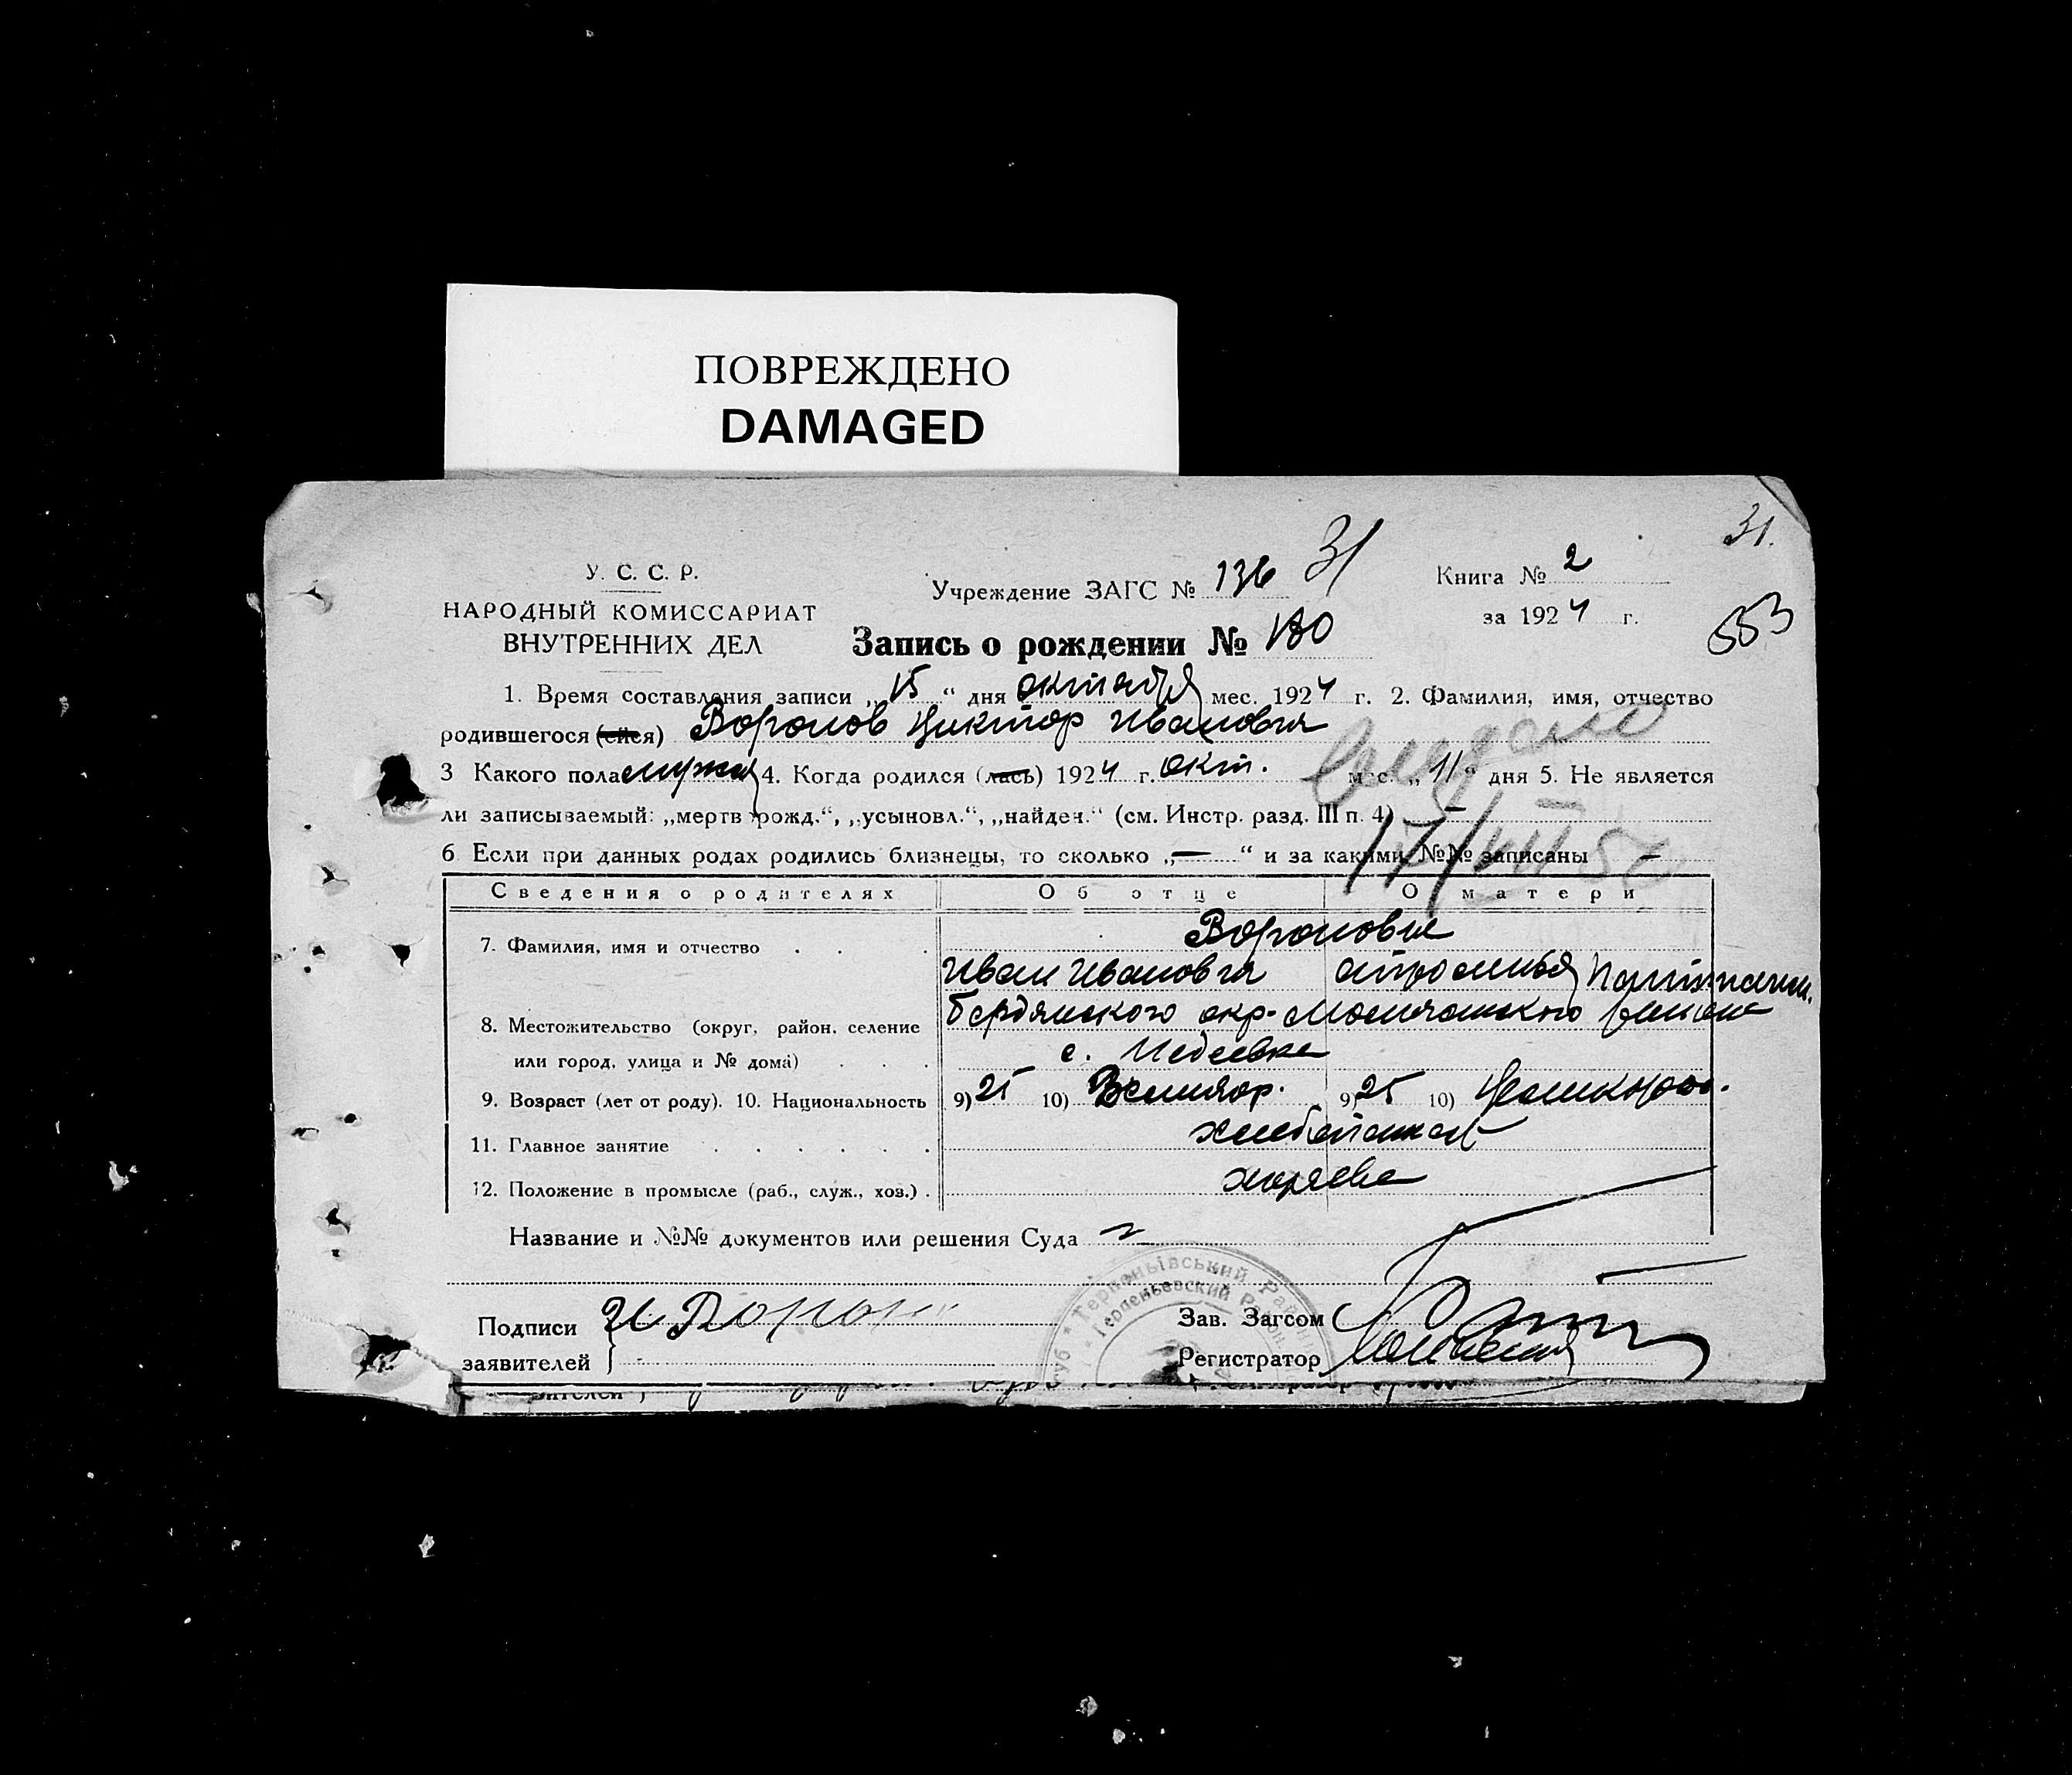 ПОВРЕЖДЕНО
DAMAGED
31.
У. С. С. Р.
НАРОДНЫЙ КОМИССАРИАТ
ВНУТРЕННИХ ДЕЛ
Учреждение ЗАГС № 136 31
Книга № 2
за 1924 г.
553
Запись о рождении №
1. Время составления записи „15“ дня октября мес. 1924 г. 2. Фамилия, имя, отчество
родившегося (ейся) Воронов Виктор Иванович
3 Какого пола мужск 4. Когда родился (лась) 1924 г. окт. мес. „11“ дня 5. Не является
ли записываемый: „мертв рожд.“, „усыновл.“, „найден.“ (см. Инстр. разд. III п. 4) —
6 Если при данных родах родились близнецы, то сколько „—“ и за какими №№ записаны —
Сведения о родителях Об отце О матери
7. Фамилия, имя и отчество Вороновы
Иван Иванович
8. Местожительство (округ, район, селение Бердянского окр.
или город, улица и № дома) с.
9. Возраст (лет от роду). 10. Национальность 9) 25 10) 9) 25 10)
11. Главное занятие
12. Положение в промысле (раб., служ., хоз.) хозяева
Название и №№ документов или решения Суда
Подписи
заявителей
Зав. Загсом
Регистратор